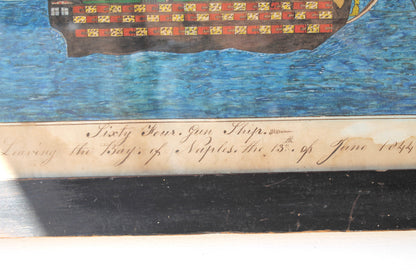 Sixty Four. Gun Ship.
Leaving the Bay. of Naples. the 15th of June 1844